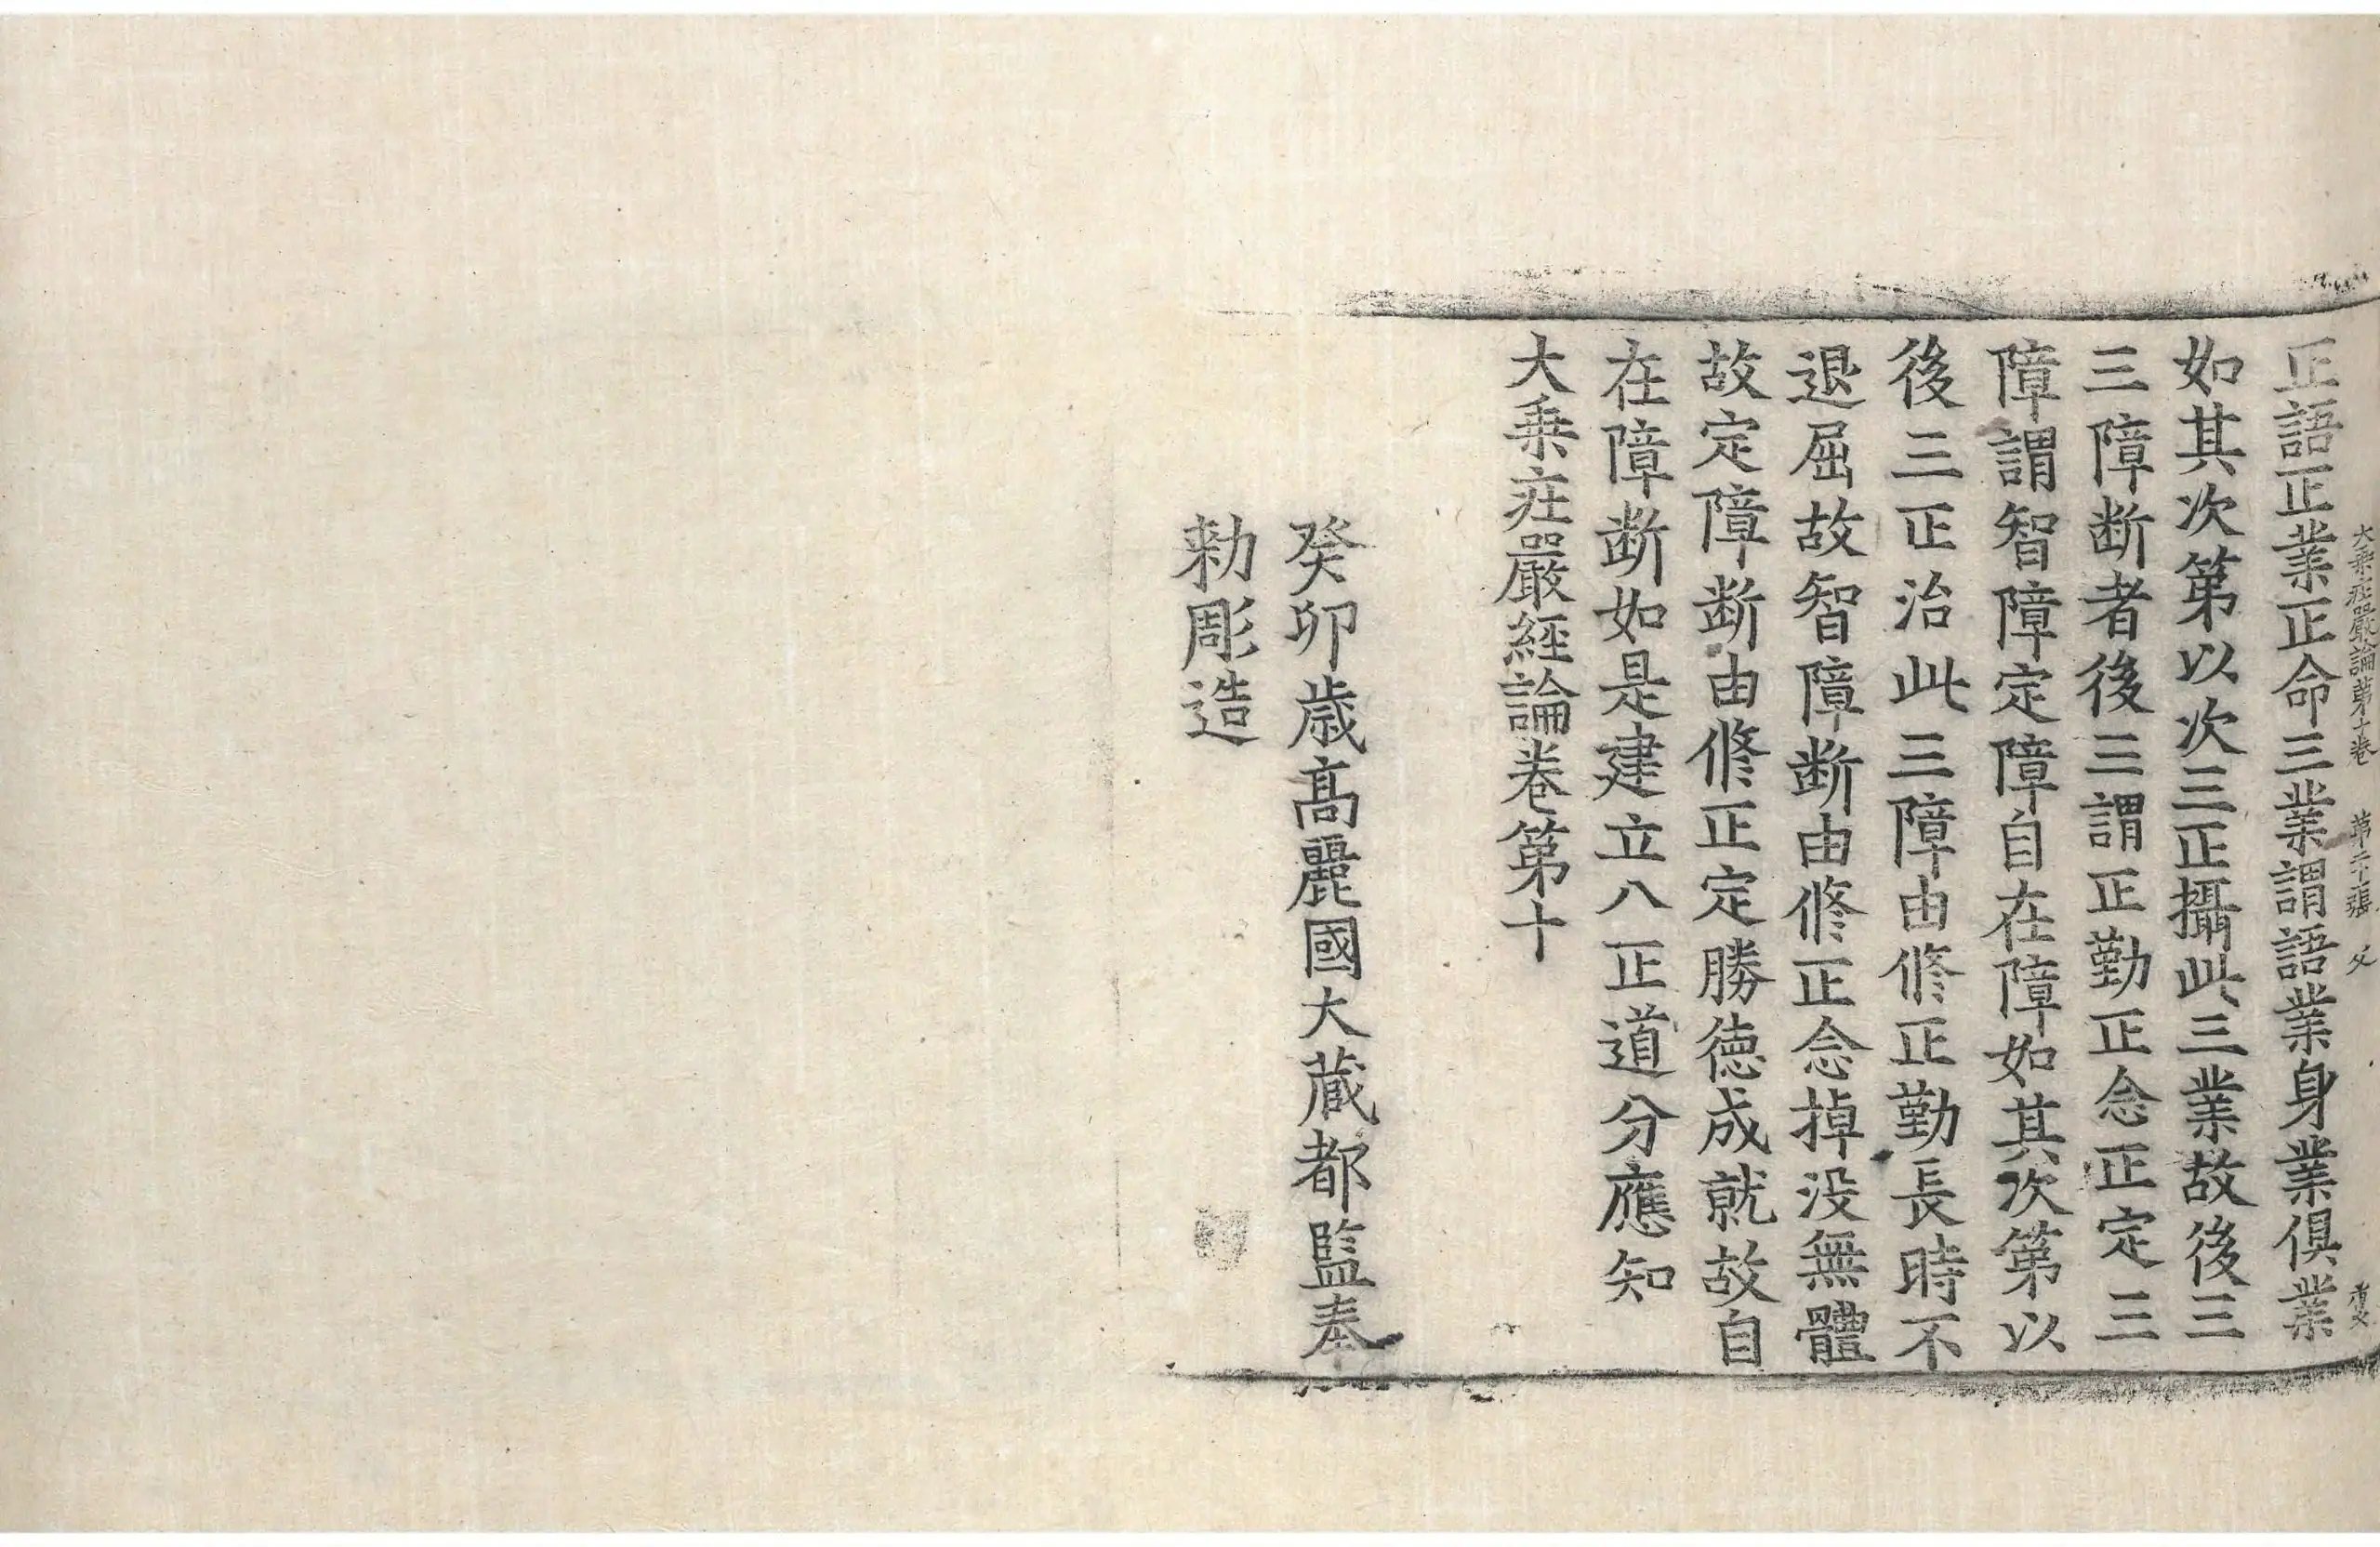 大乘莊嚴論第十卷 第二十張 父
正語正業正命三業謂語業身業俱業
如其次第以次三正攝此三業故後三
三障斷者後三謂正勤正念正定三
障謂智障定障自在障如其次第以
後三正治此三障由修正勤長時不
退屈故智障斷由修正念掉没無體
故定障斷由修正定勝德成就故自
在障斷如是建立八正道分應知
大乘莊嚴經論卷第十
癸卯歲高麗國大藏都監奉
勅彫造